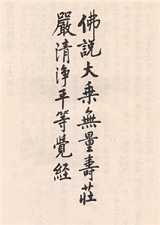 佛說大乘無量壽莊
嚴清淨平等覺経